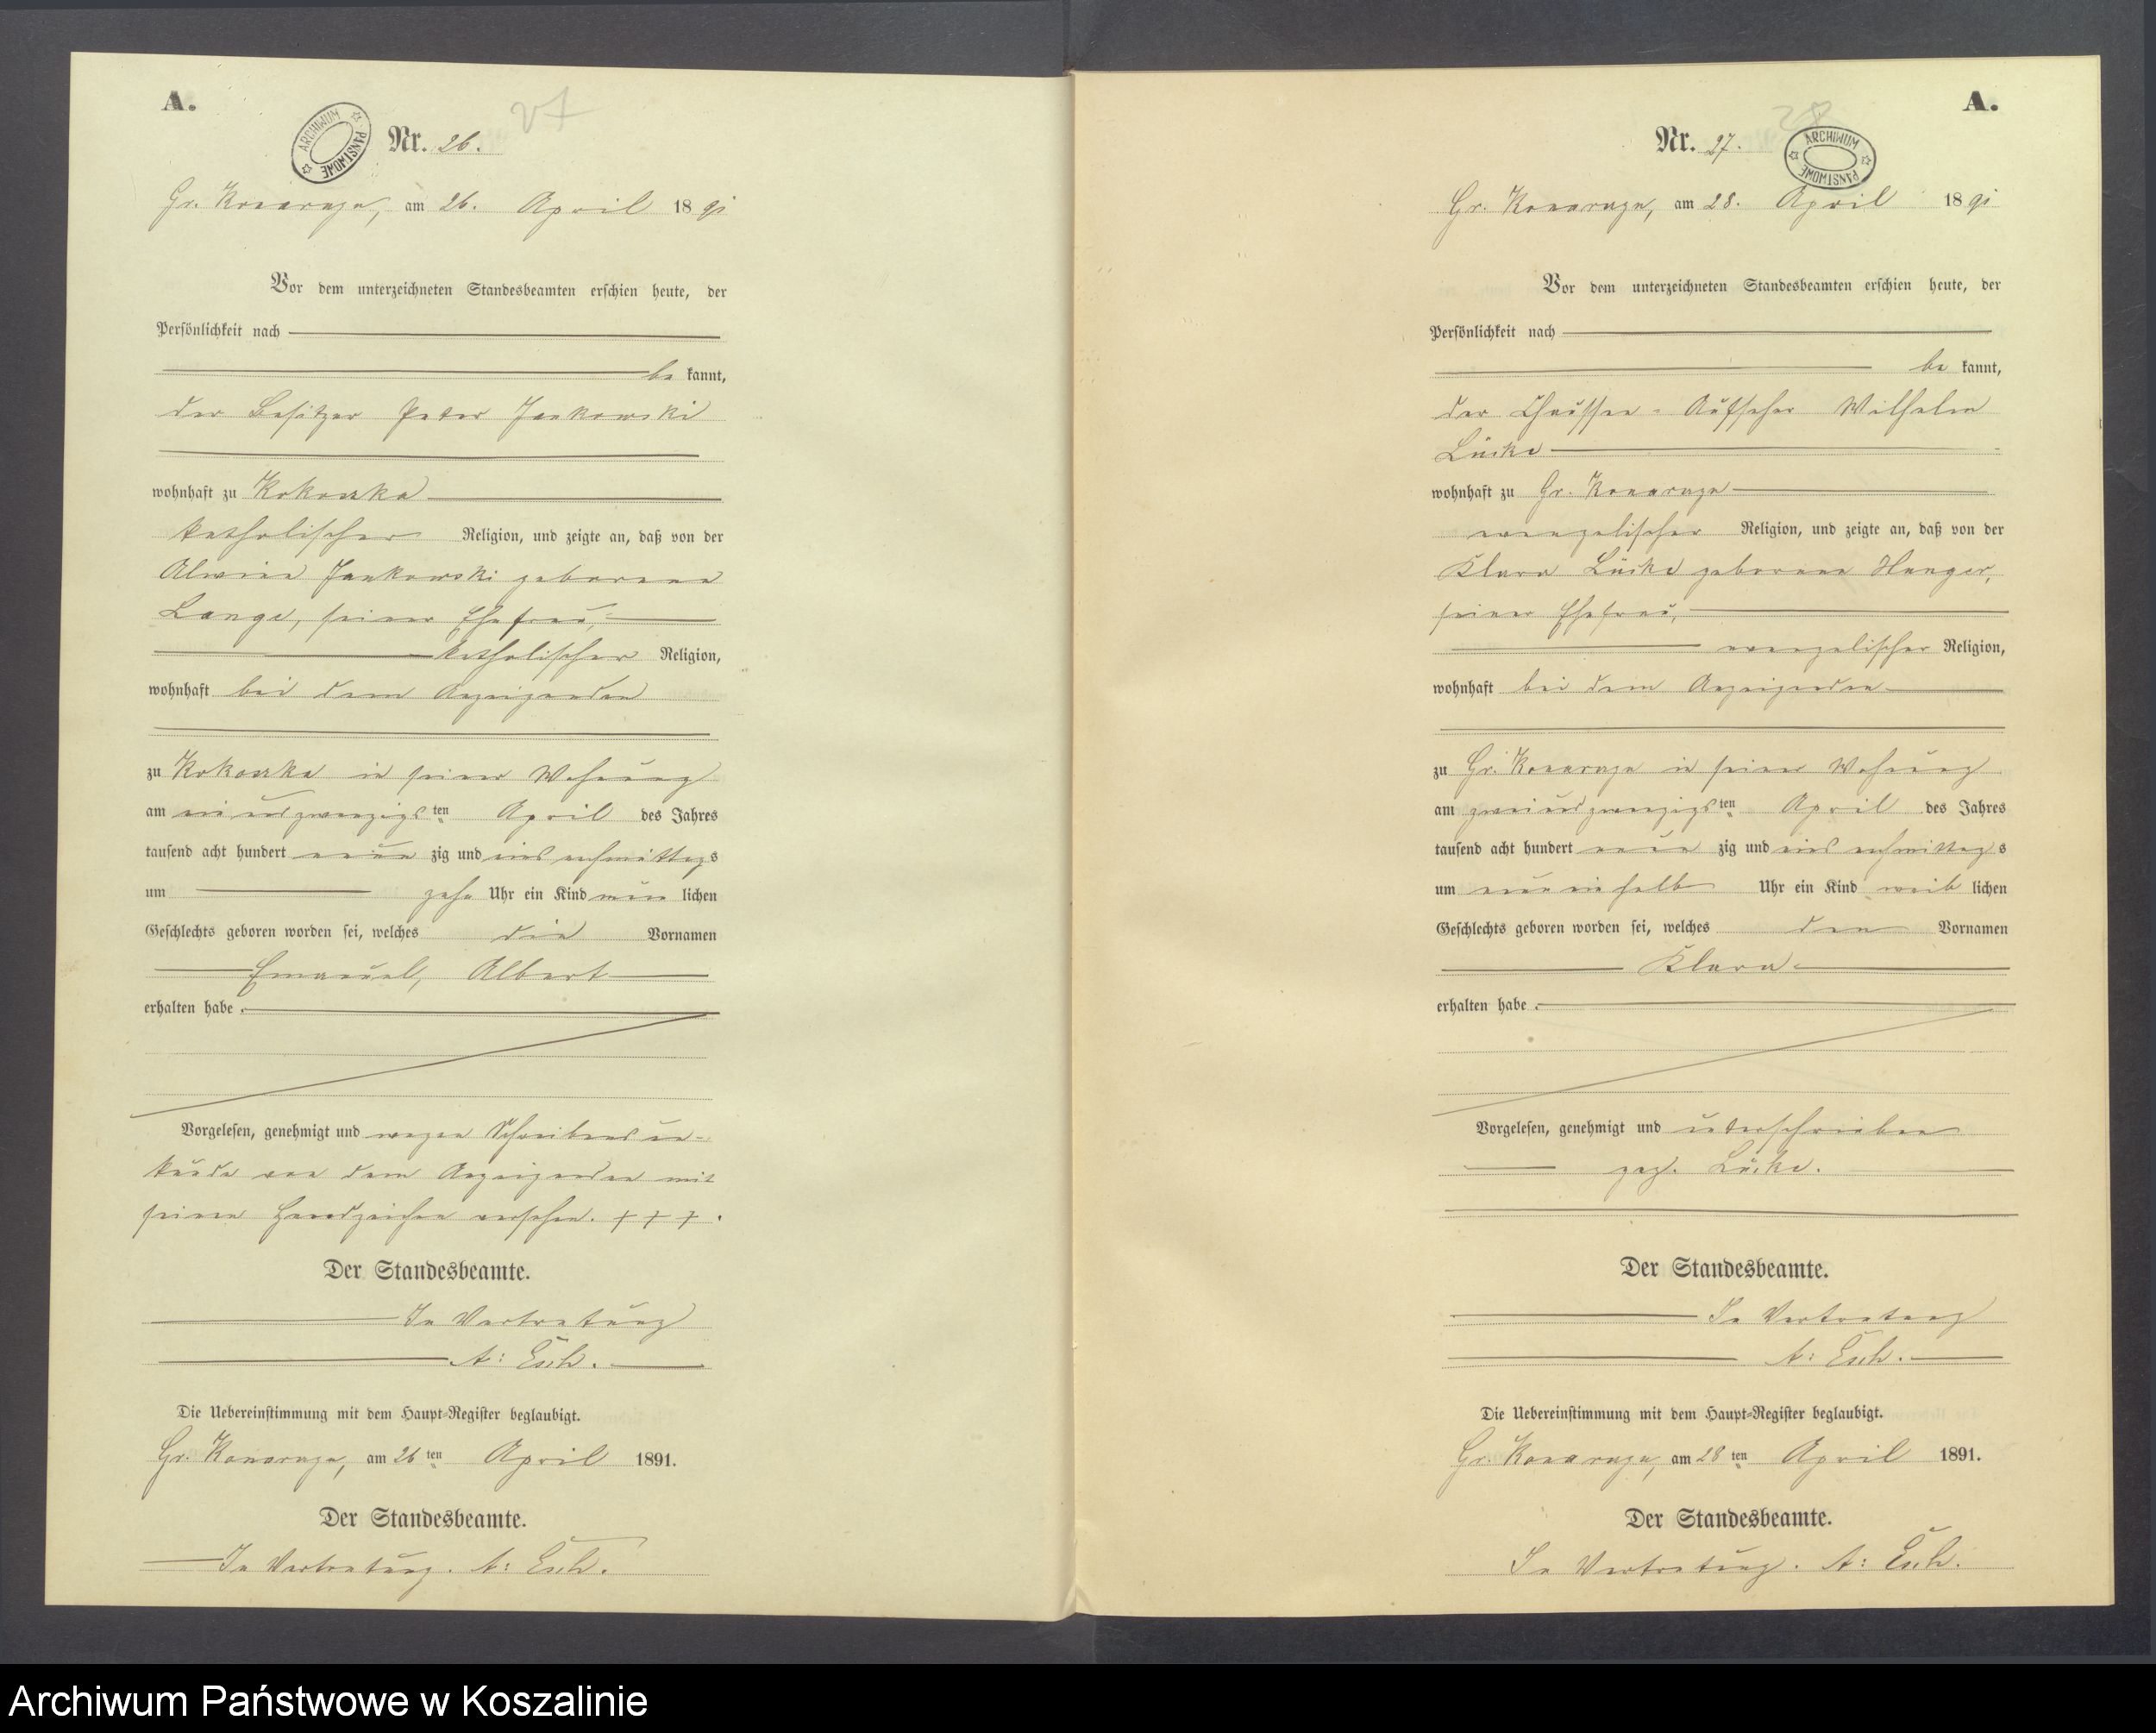 A.
ARCHIWUM PAŃSTWOWE
27
Nr. 26.
Gr. Konarzyn, am 26. April 1891
Vor dem unterzeichneten Standesbeamten erschien heute, der
Persönlichkeit nach
be kannt,
der Besitzer Peter Jankowski
wohnhaft zu Kokoszka
katholischer Religion, und zeigte an, daß von der
Alwine Jankowski geborene
Lange, seiner Ehefrau,
katholischer Religion,
wohnhaft bei dem Anzeigenden
zu Kokoszka in seiner Wohnung
am einundzwanzigsten April des Jahres
tausend acht hundert neun zig und eins nachmittags
um zehn Uhr ein Kind männ lichen
Geschlechts geboren worden sei, welches die Vornamen
Emanuel, Albert
erhalten habe.
Vorgelesen, genehmigt und wegen Schreibensun-
kunde von dem Anzeigenden mit
seinen Handzeichen versehen. + + + .
Der Standesbeamte.
In Vertretung
A: Esch.
Die Uebereinstimmung mit dem Haupt-Register beglaubigt.
Gr. Konarzyn, am 26ten April 1891.
Der Standesbeamte.
In Vertretung. A: Esch.
A.
28
Nr. 27.
ARCHIWUM PAŃSTWOWE
Gr. Konarzyn, am 28. April 1891
Vor dem unterzeichneten Standesbeamten erschien heute, der
Persönlichkeit nach
be kannt,
der Chaussee-Aufseher Wilhelm
Lüske
wohnhaft zu Gr. Konarzyn
evangelischer Religion, und zeigte an, daß von der
Klara Lüske geborene Hunger,
seiner Ehefrau,
evangelischer Religion,
wohnhaft bei dem Anzeigenden
zu Gr. Konarzyn in seiner Wohnung
am zweiundzwanzigsten April des Jahres
tausend acht hundert neun zig und eins nachmittags
um neuneinhalb Uhr ein Kind weib lichen
Geschlechts geboren worden sei, welches den Vornamen
Klara
erhalten habe.
Vorgelesen, genehmigt und unterschrieben
gez. Lüske.
Der Standesbeamte.
In Vertretung
A: Esch.
Die Uebereinstimmung mit dem Haupt-Register beglaubigt.
Gr. Konarzyn, am 28ten April 1891.
Der Standesbeamte.
In Vertretung. A: Esch.
Archiwum Państwowe w Koszalinie